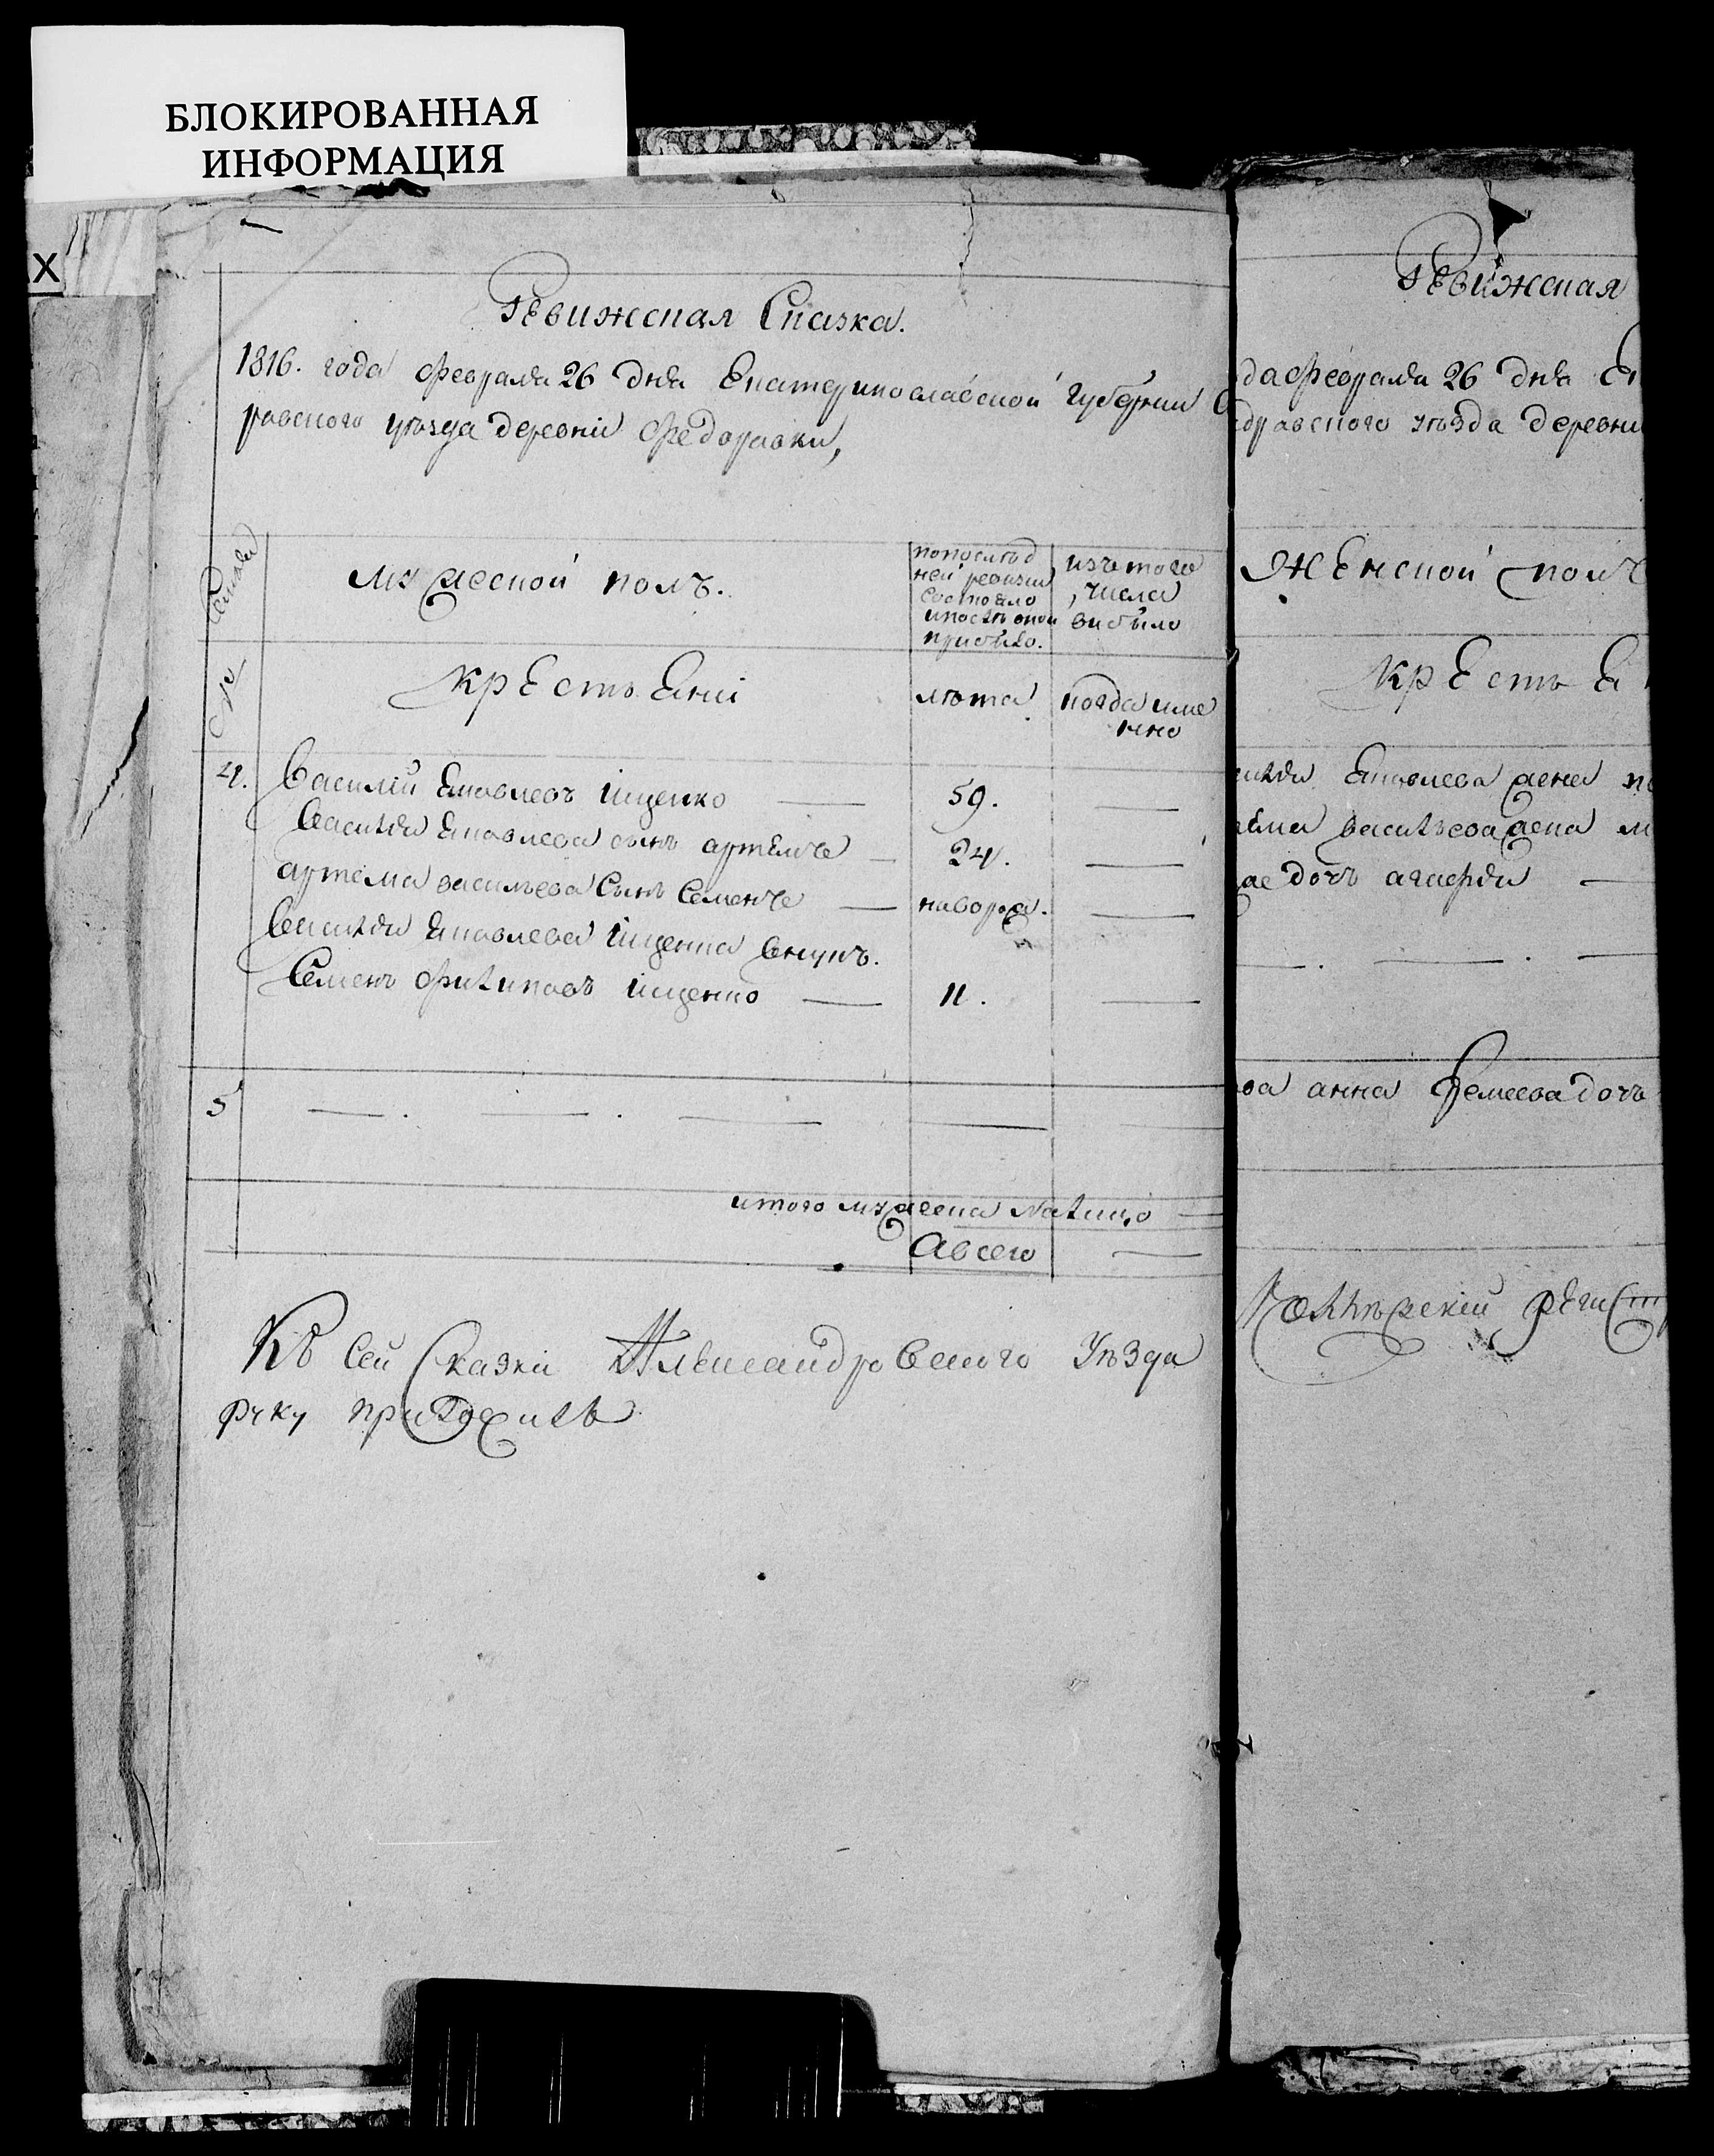 БЛОКИРОВАННАЯ
ИНФОРМАЦИЯ
X
Ревижская Сказка.
1816. года февраля 26 дня Екатеринославской губернии
ровского уъзда деревнi Федоравки,
Семьи
мужеской полъ.
попослъд
ней ревизии
состояло
ипослъ оной
прибыло.
изътого
числа
выбыло
№
крЕстьЕнi
лъта
когда име
нно
4. Василiй Яковлевъ iщенко — 59. —
Василья Яковлева сынъ артЕмъе — 24. —
артема васильева Сынъ Семенъе — наворож. —
Василья Яковлева iщенка внукъ.
Семенъ филиповъ iщенко — 11. —
5 — . — . — — —
итого мужеска налицо —
Авсего —
Къ сей Сказки Александровского Уъзда
руку приложилъ
Ревижская
да февраля 26 дня Е
дравского уъзда деревни
жЕнской полъ
крЕстьЕ
Яковлева жена
васильева жена
дочъ
— . — . —
ва анна дочъ
Колъжскiй рЕгист